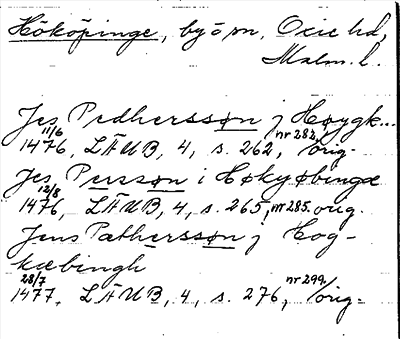 Hököpinge, by o sn, Oxie hd,
Malm. l.
Jes Pedherssøn j Høygk...
11/6 1476, LÄUB, 4, s. 262, nr 282, orig.
Jes Persson i Høkyøbinge
12/8 1476, LÄUB, 4, s. 265, nr 285. orig.
Jens Pæthersson j Hog-
kæbingh
28/7 1477, LÄUB, 4, s. 276, nr 299, orig.